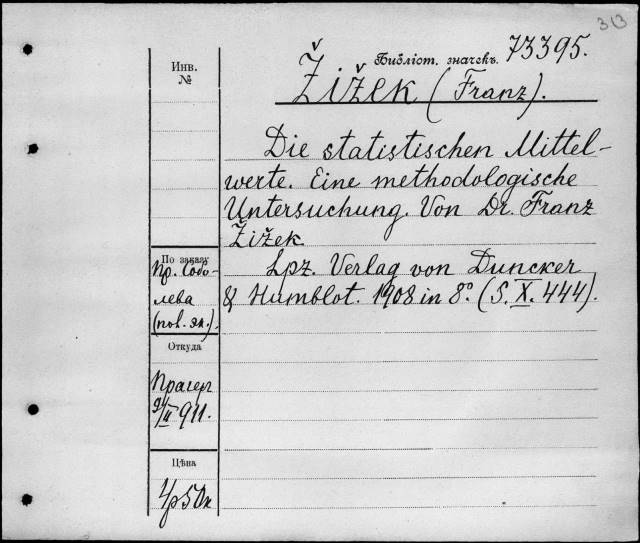 313
Библіот. значекъ 73395.
Инв.
№
Žižek (Franz).
Die statistischen Mittel-
werte. Eine methodologische
Untersuchung. Von Dr. Franz
Žižek.
Lpz. Verlag von Duncker
& Humblot. 1908 in 8°. (S. X. 444).
По заказу
Пр. Собо-
лева
(пов. эк.).
Откуда
Прагер
9/II 911.
Цѣна
4р 50к